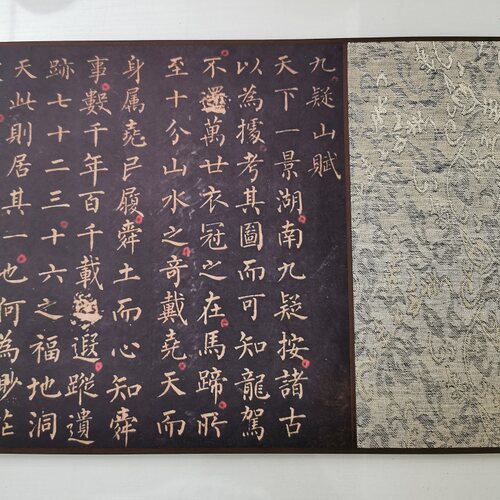 九疑山賦
天下一景湖南九疑按諸古
以為據考其圖而可知龍駕
不還萬世衣冠之在馬蹄所
至十分山水之奇戴堯天而
身属堯民履舜土而心知舜
事數千年百千載遐蹤遺
跡七十二三十六之福地洞
天此則居其一也何為眇茫